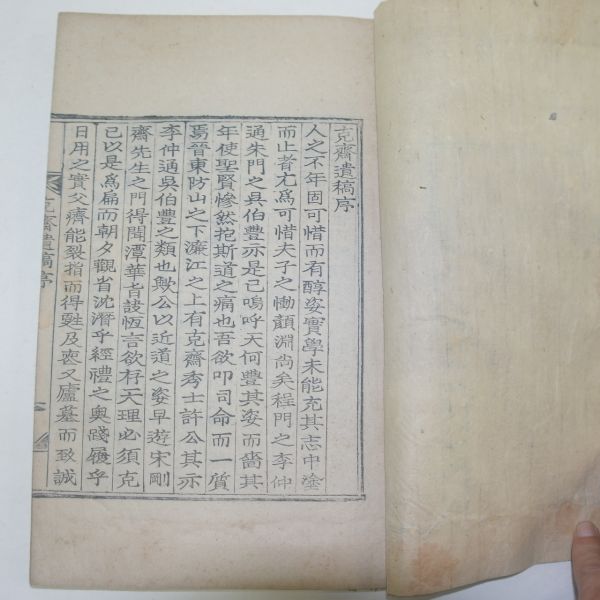 克齋遺稿序
人之不年固可惜而有醇姿實學未能充其志中塗
而止者尤爲可惜夫子之慟顔淵尚矣程門之李仲
通朱門之吳伯豐亦是已嗚呼天何豐其姿而嗇其
年使聖賢慘然抱斯道之痛也吾欲叩司命而一質
焉晉東防山之下濂江之上有克齋秀士許公其亦
李仲通吳伯豐之類也歟公以近道之姿早遊宋剛
齋先生之門得聞潭華旨訣恆言欲存天理必須克
己以是爲扁而朝夕觀省沈潛乎經禮之奧踐履乎
日用之實父癠能裂指而得甦及喪又廬墓而致誠
克齋遺稿序